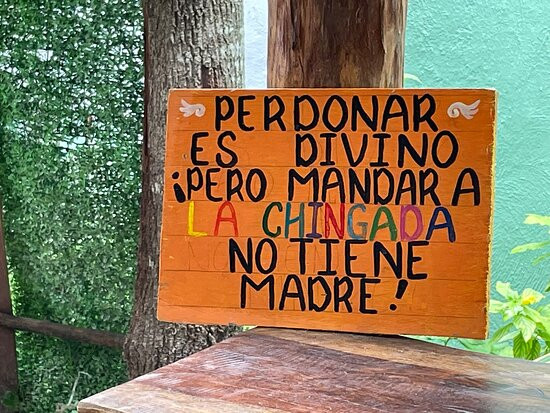 PERDONAR
ES DIVINO
¡PERO MANDAR A
LA CHINGADA
NO TIENE
MADRE!